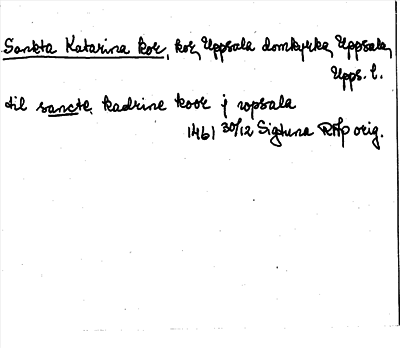 Sankta Katarina kor, kor, Uppsala domkyrka, Uppsala,
Upps. l.
til sancte kadrine koor j vopsala
1461 30/12 Sigtuna RAp orig.